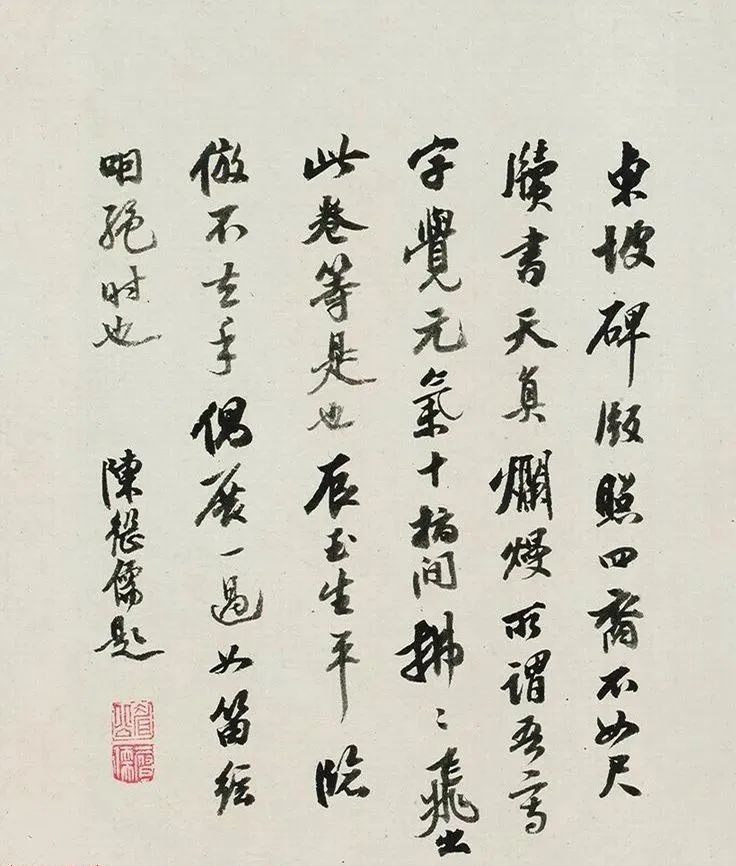 東坡碑版照四裔不如尺
牘書天真爛熳所謂吾寫
字覺元氣十指間拂〻飛出
此卷等是也辰玉生平臨
倣不去手偶展一過如笛絃
咽絕時也
陳繼儒題